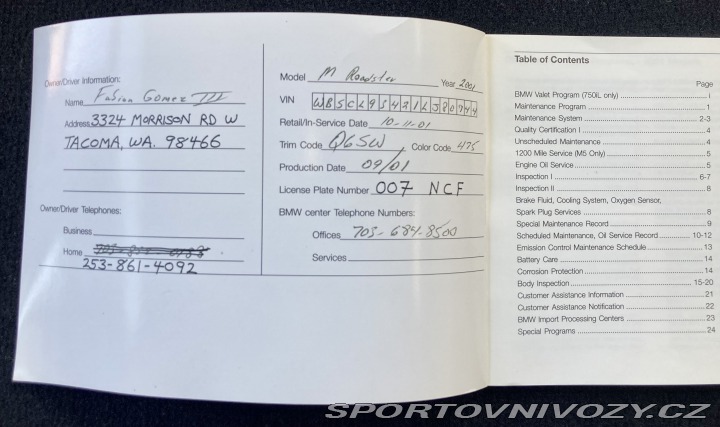 Owner/Driver Information:
Name Fabian Gomez III
Address 3324 MORRISON RD W
TACOMA, WA. 98466
Owner/Driver Telephones:
Business
Home
253-861-4092
Model M Roadster Year 2001
VIN
Retail/In-Service Date 10-11-01
Trim Code Q6SW Color Code 475
Production Date 09/01
License Plate Number 007 NCF
BMW center Telephone Numbers:
Offices 703-684-8500
Services
Table of Contents
Page
BMW Valet Program (750iL only) i
Maintenance Program 1
Maintenance System 2-3
Quality Certification I 4
Unscheduled Maintenance 4
1200 Mile Service (M5 Only) 5
Engine Oil Service 5
Inspection I 6-7
Inspection II 8
Brake Fluid, Cooling System, Oxygen Sensor,
Spark Plug Services 8
Special Maintenance Record 9
Scheduled Maintenance, Oil Service Record 10-12
Emission Control Maintenance Schedule 13
Battery Care 14
Corrosion Protection 14
Body Inspection 15-20
Customer Assistance Information 21
Customer Assistance Notification 22
BMW Import Processing Centers 23
Special Programs 24
SPORTOVNIVOZY.CZ